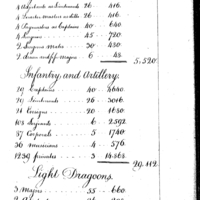 2 Adjutants as Lieutenants 26 416.
4 Quarter Masters as do 26 416.
4 Paymasters as Captains 40 640
4 Surgeons 45 720
2 Surgeons Mates 30 480
2 Drum and fife Majors 6 48
5.520
Infantry and Artillery.
29 Captains 40 4640
29 Lieutenants 26 3016.
21 Ensigns 20 1680
108 Sergeants 6 2592
87 Corporals 5 1740
36 musicians 4 576
1239 privates 3 14.868
29.112
Light Dragoons.
3 Majors 55 660